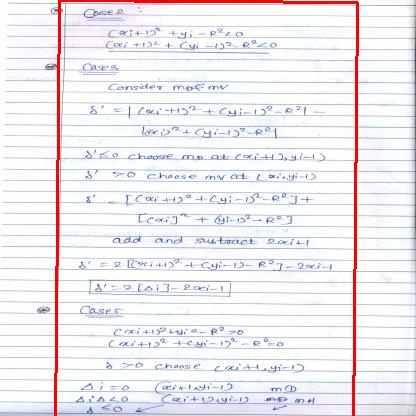 Case 2 :
(xi+1)² + yi - R² < 0
(xi+1)² + (yi-1)² - R² < 0
Case 3
Consider mD & mV
δ' = | (xi+1)² + (yi-1)² - R² | -
|(xi)² + (yi-1)² - R²|
δ' ≤ 0 choose mD at (xi+1), yi-1)
δ' > 0 choose mV at (xi, yi-1)
δ' = [(xi+1)² + (yi-1)² - R²] +
[(xi)² + (yi-1)² - R²]
add and subtract 2xi+1
δ' = 2[(xi+1)² + (yi-1) - R²] - 2xi-1
δ' = 2[Δi] - 2xi-1
Case 5
(xi+1)² + yi² - R² > 0
(xi+1)² + (yi-1)² - R² = 0
δ > 0 choose (xi+1, yi-1)
Δi = 0 (xi+1, yi-1) mD
(xi+1, yi-1) mH
δ ≤ 0